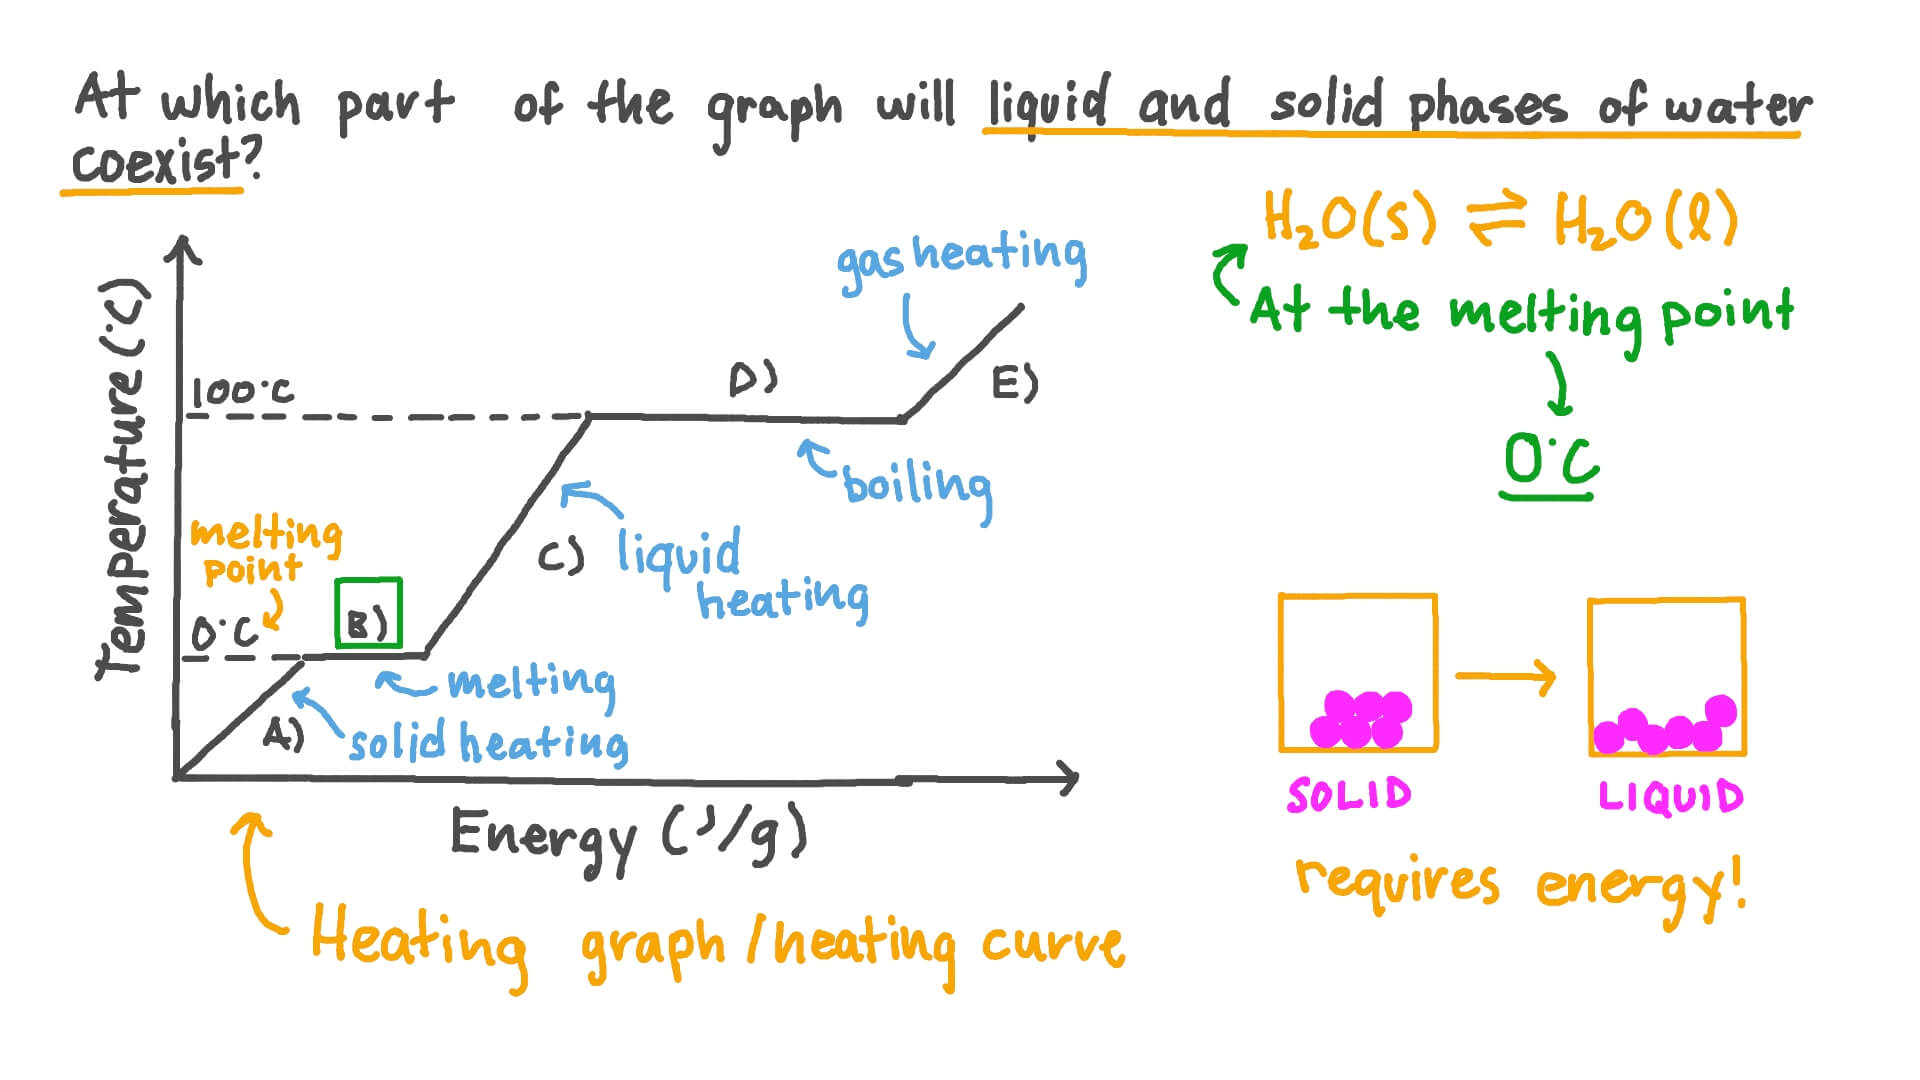 At which part of the graph will liquid and solid phases of water
coexist?
H₂O(s) ⇌ H₂O(l)
At the melting point
0°C
Temperature (°C)
100°C
melting
point
0°C
A)
B)
C)
D)
E)
solid heating
melting
liquid
heating
boiling
gas heating
Energy (J/g)
Heating graph/heating curve
SOLID
LIQUID
requires energy!